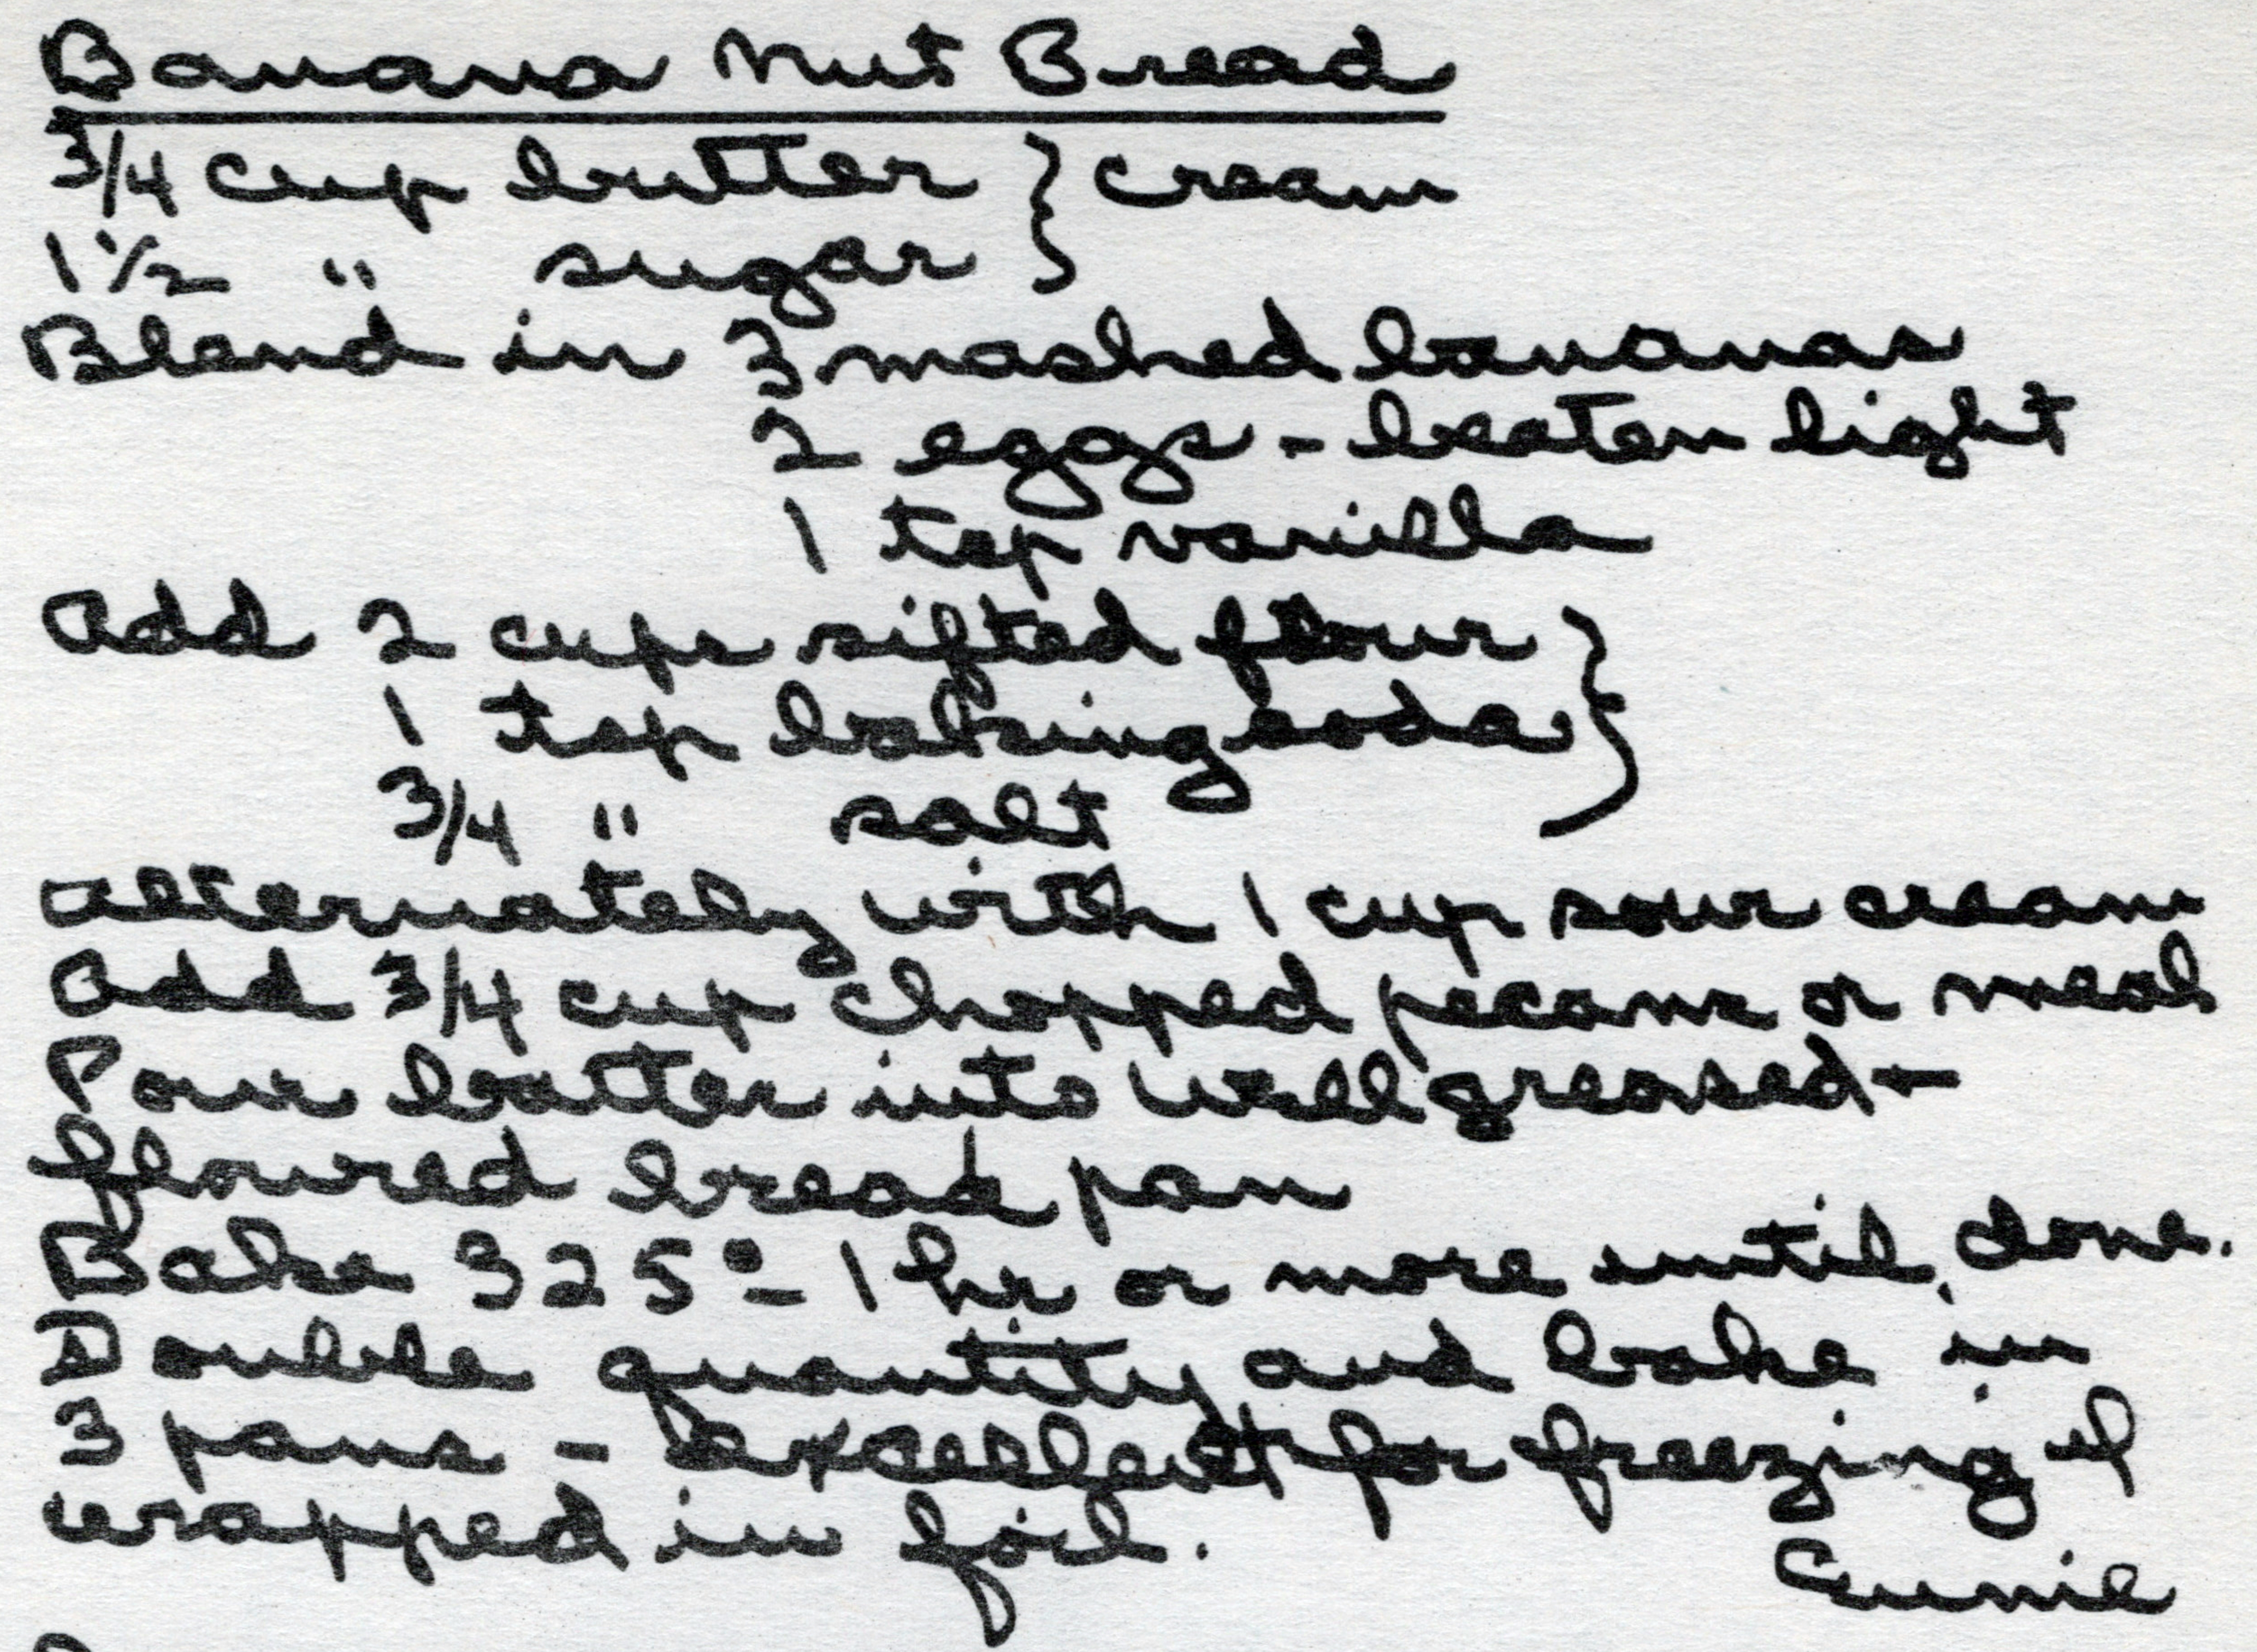 Banana Nut Bread
3/4 cup butter } cream
1 1/2 " sugar }
Blend in 3 mashed bananas
2 eggs - beaten light
1 tsp vanilla
Add 2 cups sifted flour }
1 tsp baking soda }
3/4 " salt
alternately with 1 cup sour cream
Add 3/4 cup chopped pecans or meal
Pour batter into well greased -
floured bread pan
Bake 325° - 1 hr or more until done.
Double quantity and bake in
3 pans - excellent for freezing if
wrapped in foil.
Eunie